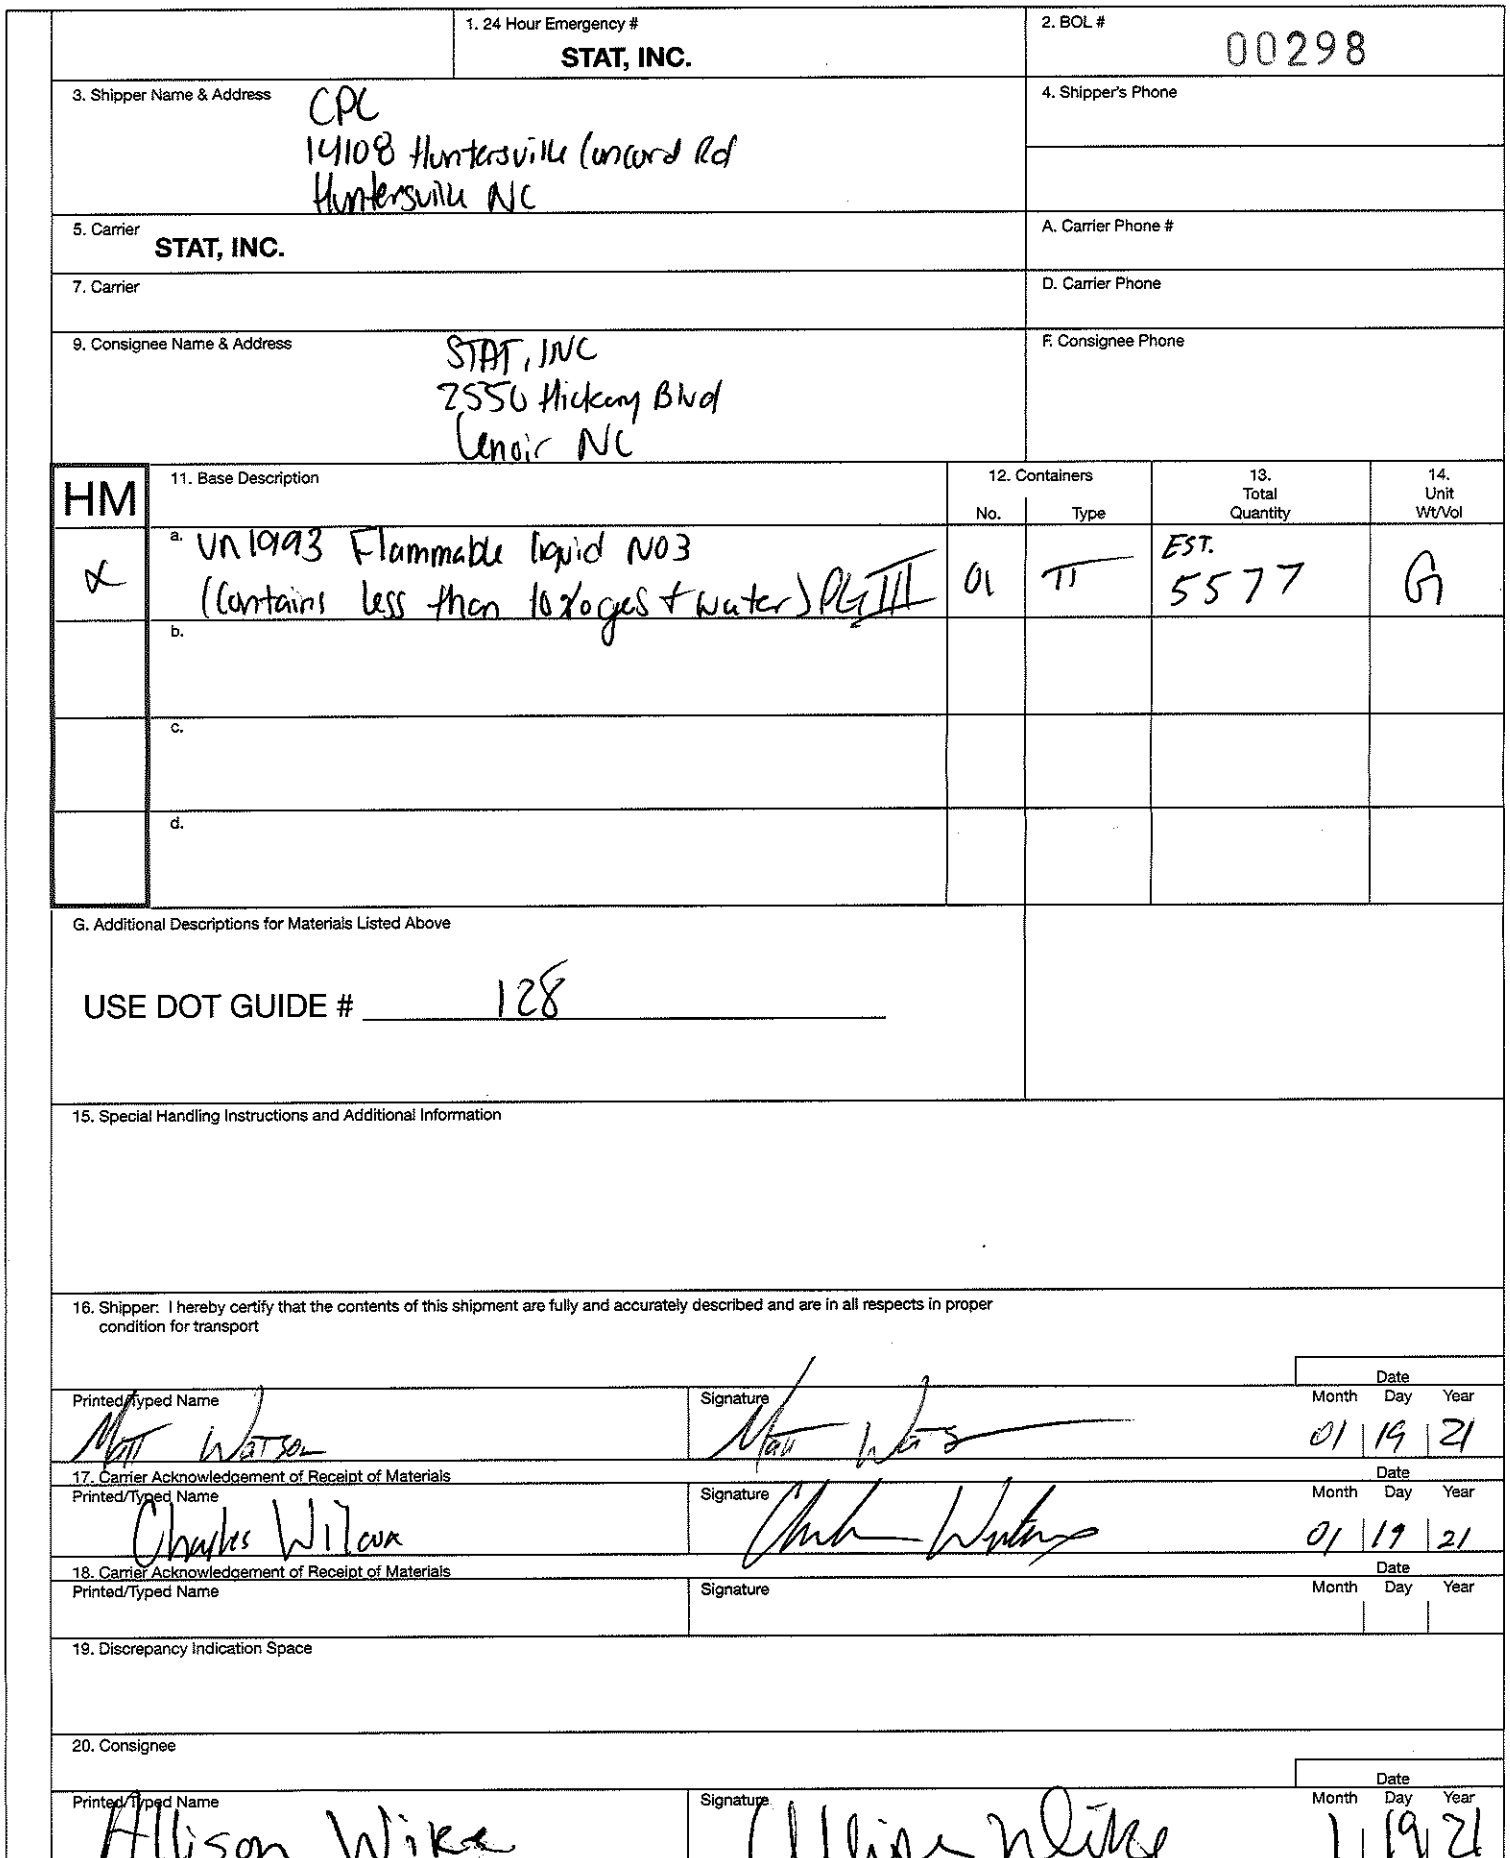 1. 24 Hour Emergency #
STAT, INC.
2. BOL #
00298
3. Shipper Name & Address
CPC
14108 Huntersville Concord Rd
Huntersville NC
4. Shipper's Phone
5. Carrier
STAT, INC.
A. Carrier Phone #
7. Carrier
D. Carrier Phone
9. Consignee Name & Address
STAT, INC
2550 Hickory Blvd
Lenoir NC
F. Consignee Phone
HM
11. Base Description
12. Containers
No. Type
13.
Total
Quantity
14.
Unit
Wt/Vol
X
a. UN1993 Flammable liquid NO3
(Contains less than 10% gas + water) PG III
01
TT
EST.
5577
G
b.
c.
d.
G. Additional Descriptions for Materials Listed Above
USE DOT GUIDE # 128
15. Special Handling Instructions and Additional Information
16. Shipper: I hereby certify that the contents of this shipment are fully and accurately described and are in all respects in proper
condition for transport
Date
Printed/Typed Name
Signature
Month Day Year
Matt Watson
Matt Wats
01 19 21
17. Carrier Acknowledgement of Receipt of Materials
Date
Printed/Typed Name
Signature
Month Day Year
Charles Wilcox
01 19 21
18. Carrier Acknowledgement of Receipt of Materials
Date
Printed/Typed Name
Signature
Month Day Year
19. Discrepancy Indication Space
20. Consignee
Date
Printed/Typed Name
Signature
Month Day Year
Allison Wike
Allison Wike
1 19 21